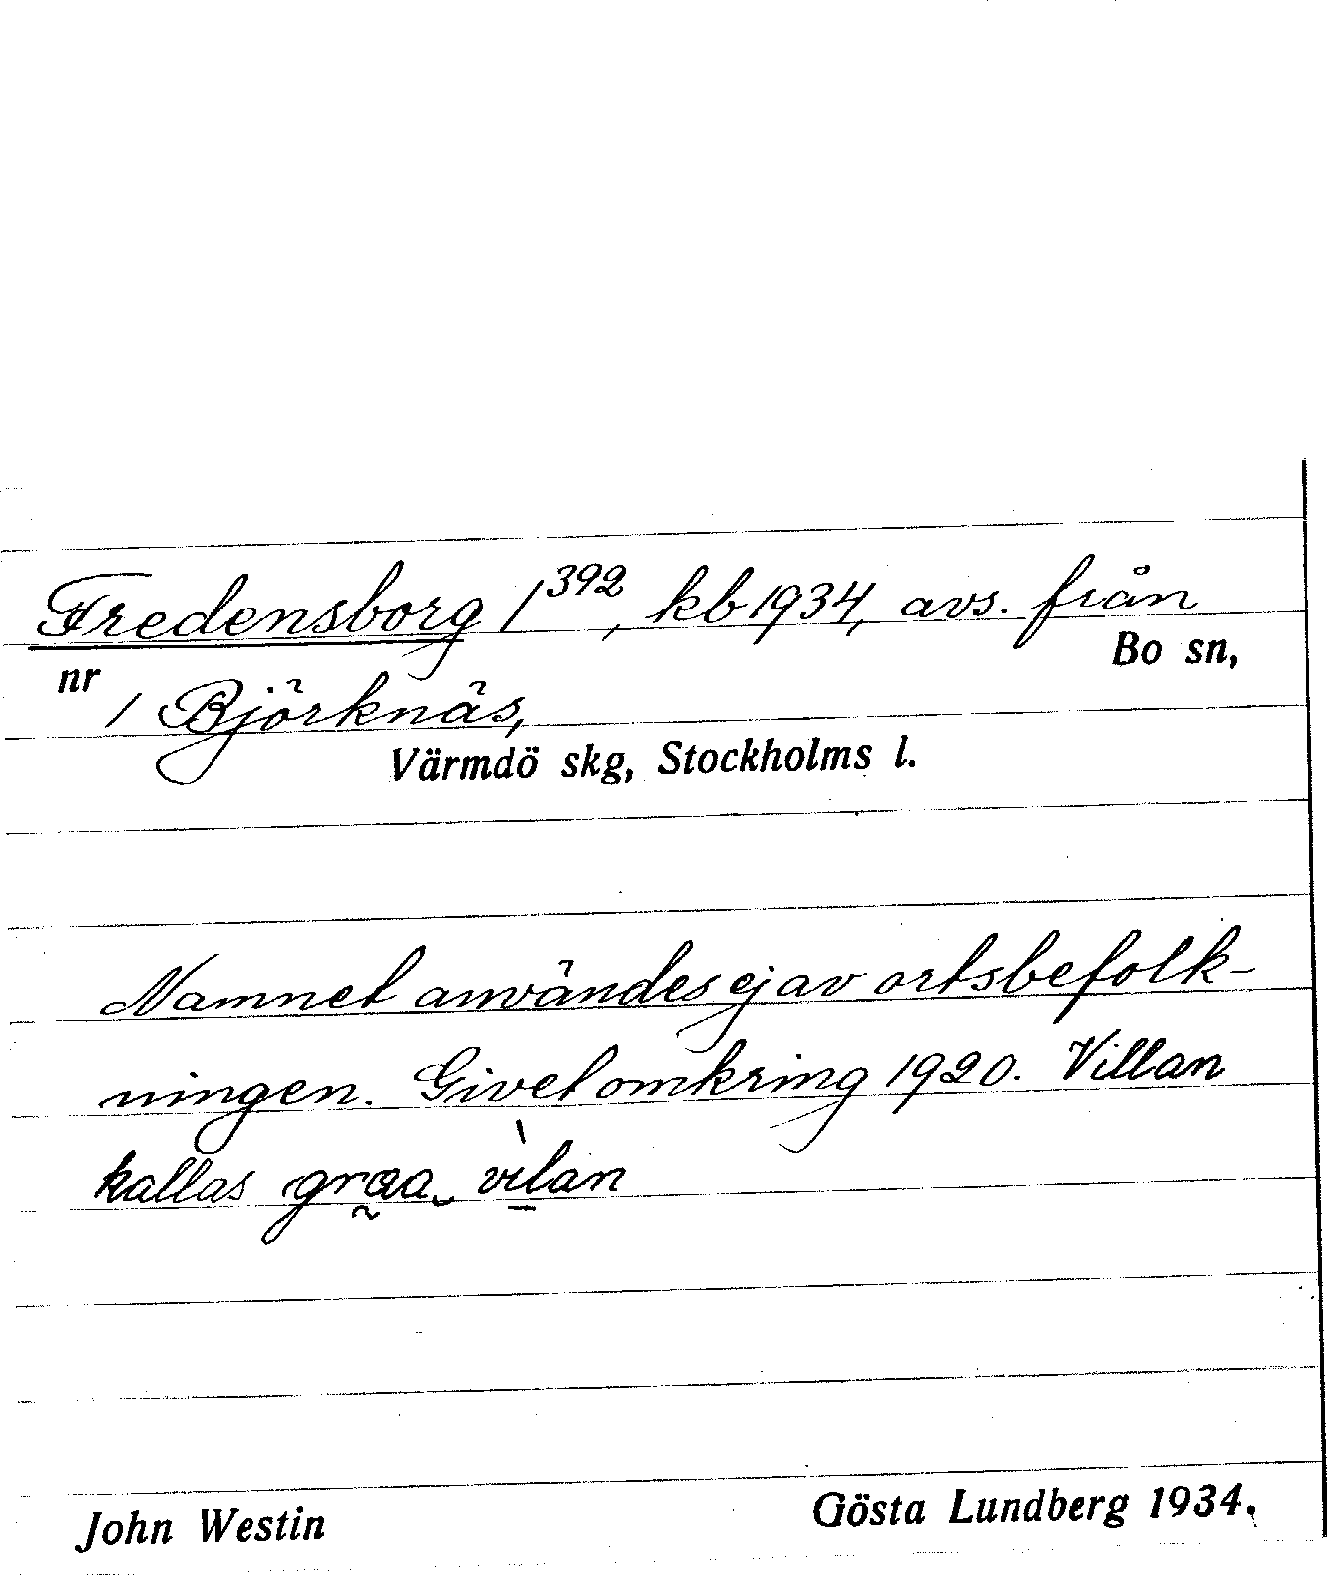 Fredensborg 1³⁹², kb 1934, avs. från
Bo sn,
nr 1 Björknäs,
Värmdö skg, Stockholms l.
Namnet användes ej av ortsbefolk-
ningen. Givet omkring 1920. Villan
kallas graa vìlan
John Westin Gösta Lundberg 1934.